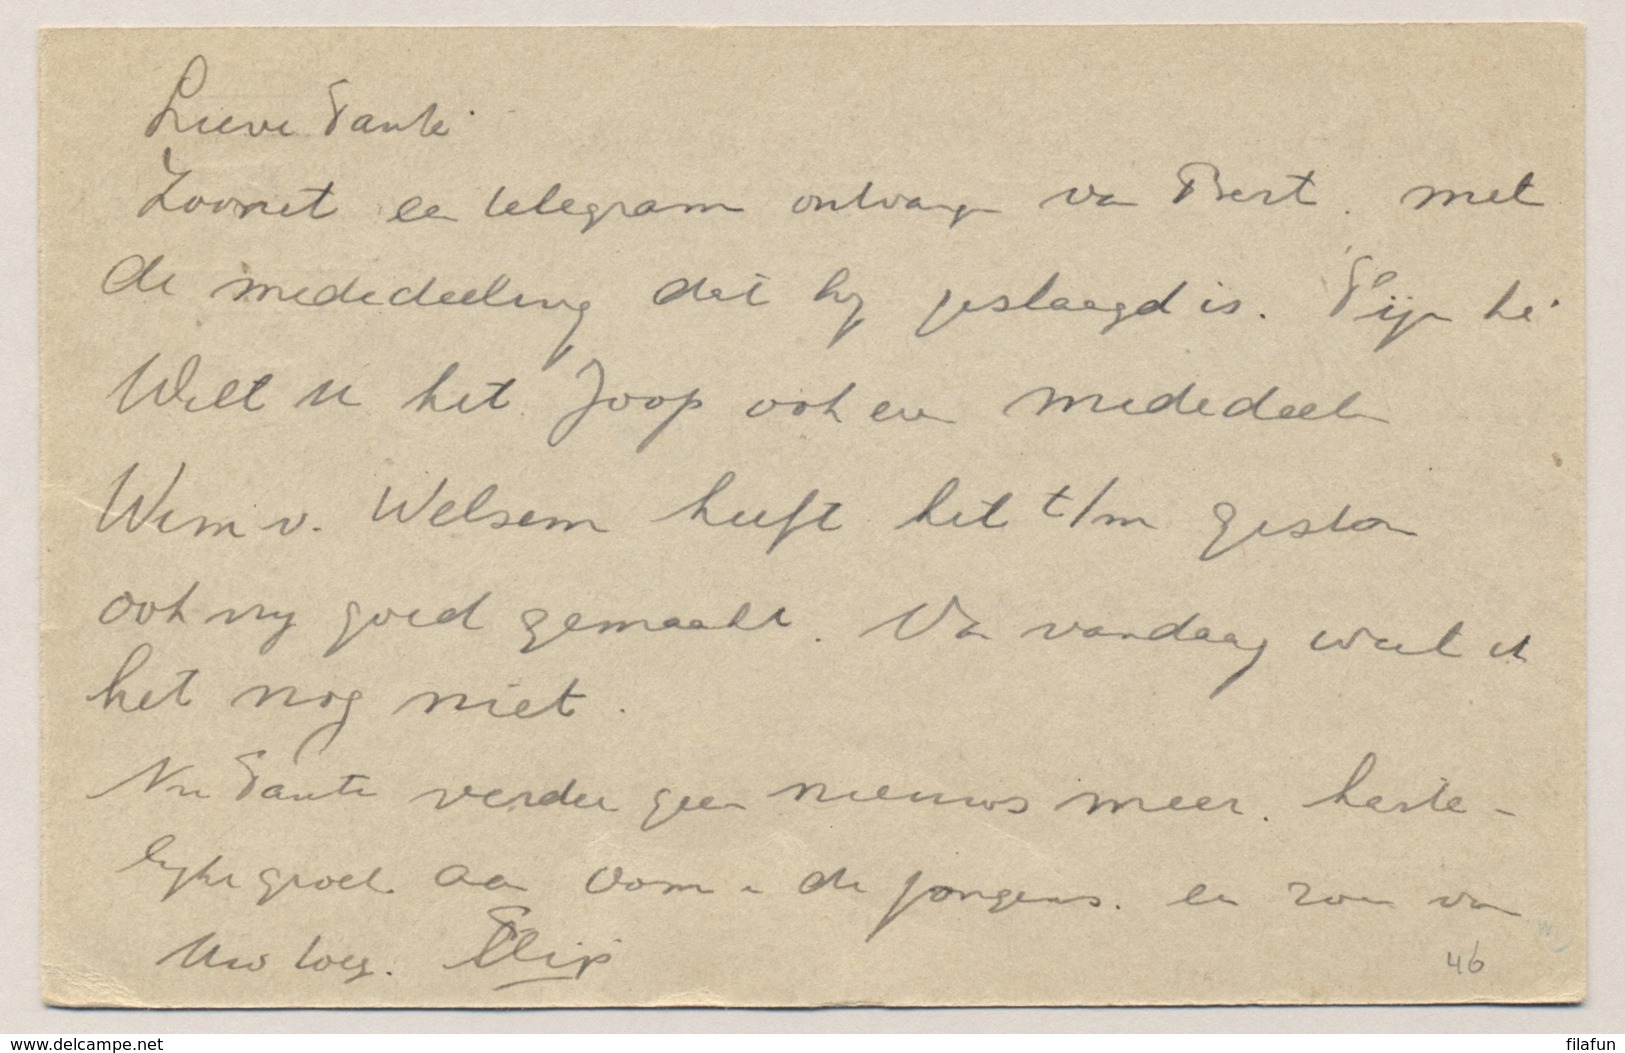 Lieve Tante.
Zoonet een telegram ontvangen van Bert. met
de mededeeling dat hij geslaagd is. Fijn hè.
Wilt U het Joop ook even mededeelen
Wim v. Welsem heeft het t/m gisteren
ook vrij goed gemaakt. Van vandaag weet ik
het nog niet.
Nu Tante verder geen nieuws meer. harte-
lijke groet. aan Oom en de jongens. en zoen van
Uw toeg.
46
www.delcampe.net
filafun